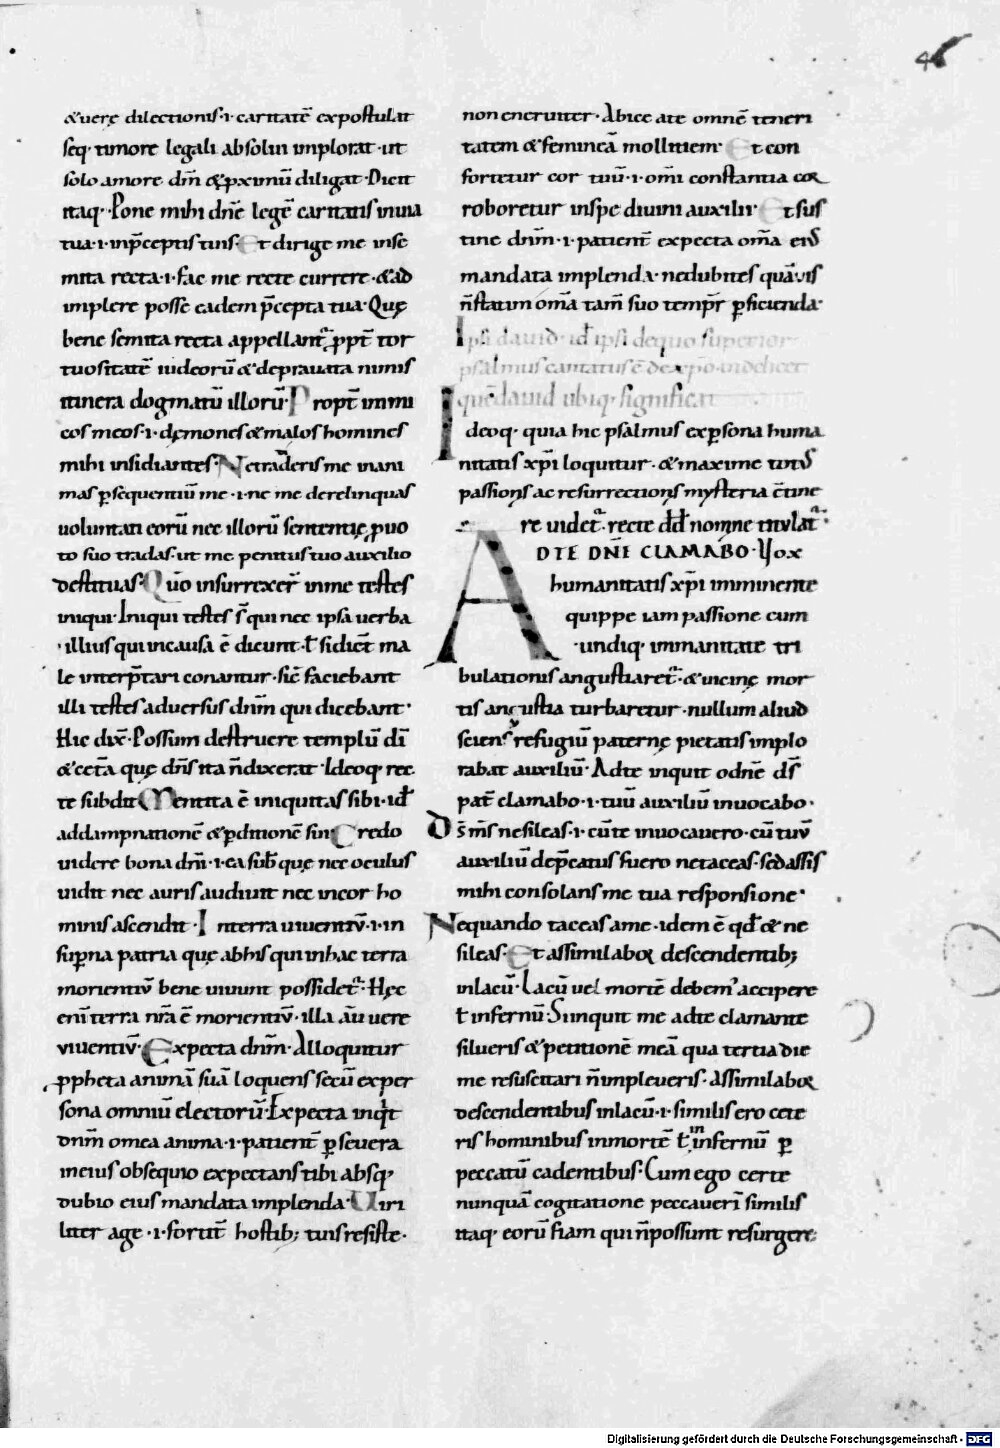 46
&uerę dilectionis·i·caritatē expostulat
seq̄· timore legali absolui implorat· ut
solo amore dm̄ &p̱ximū diligat· Dicit
itaq· Pone mihi dn̄e legē caritatis in uia
tua·i·inp̄ceptis tuis· Et dirige me inse
mita recta·i·fac me recte currere·&ad
implere posse eadem p̄cepta tua· Quę
bene semita recta appellant᷑ ꝓpt̄ tor
tuositatē iudeorū &deprauata nimis
itinera dogmatū illorū· Propt̄ inimi
cos meos·i·dęmones &malos homines
mihi insidiantes· Netraderis me inani
mas ꝑsequentiū me·i·ne me derelinquas
voluntati eorū nec illorū sententię ꝓuo
to suo tradas·ut me penitus tuo auxilio
destituas· Qm̄ insurrexer̄ inme testes
iniqui· Iniqui testes s̄ qui nec ipsa uerba
illius qui incausa ē dicunt· ł sidicēt ma
le interp̄tari conantur· sic̄ faciebant
illi testes adversus dnm̄ qui dicebant·
Hic dix̄· Possum destruere templū dī
&cet̄a quę dn̄s ita n̄dixerat· Ideoq· rec
te subdit Mentita ē iniquitas sibi· id̄
addampnationē &ꝑditionē sui· Credo
uidere bona dnī·i·ea sub̄ quę nec oculus
uidit nec auris audiuit nec incor ho
minis ascendit· Interra uiuentiū·i·in
suꝑna patria quę abhis qui inhac terra
morientiū bene uiuunt possidet᷑· Hęc
enī terra nr̄a ē morientiū· illa aū uere
viuentiū· Expecta dnm̄· Alloquitur
ꝓpheta animā suā loquens secū exper
sona omniū electorū· Expecta inq̇t
dnm̄ omea anima·i·patient̄ ꝑseuera
ineius obsequio expectans tibi absq·
dubio eius mandata implenda· Uiri
liter age·i·fortit̄ hostib; tuis resiste·
non eneruiter· Abice ate omnē teneri
tatem &femineā mollitiem· Et con
fortetur cor tuū·i·omī constantia cor
roboretur inspe diuini auxilii· Et sus
tine dnm̄·i·patient̄ expecta om̄a eius
mandata implenda· nedubites quāuis
n̄statim om̄a tam̄ suo tempr̄ ꝑficienda·
Ipsi dauid· id̄ ipsi dequo superior
psalmus cantatus ē dexp̄o· uidelicet
quē dauid ubiq· significat
Ideoq· quia hic psalmus exꝑsona huma
nitatis xp̄i loquitur·&maxime totius
passionis ac resurrectionis mysteria c̄tine
re uidet᷑· recte dd̄ nomine titulat᷑·
ADTE DNĒ CLAMABO· Uox
humanitatis xp̄i imminente
quippe iam passione cum
undiq· immanitate tri
bulationis angustiaret᷑·&uicinę mor
tis angustia turbaretur· nullum aliud
sciens refugiū paternę pietatis implo
rabat auxiliū· Adte inquit odn̄e ds̄
pat̄ clamabo·i·tuū auxiliū inuocabo·
Ds̄ ms̄ nesileas·i·cūte inuocauero·cū tuū
auxiliū dep̄catus fuero netaceas·sedassis
mihi consolans me tua responsione·
Nequando taceas ame· idem ē qd̄ &ne
sileas· Et assimilabor descendentib;
inlacū· Lacū vel mortē debem᷒ accipere
ł infernū· Sinquit me adte clamante
silueris &petitionē meā qua tertia die
me resuscitari n̄impleueris· assimilabor
descendentibus inlacū·i·similis ero cete
ris hominibus inmortē ł in infernū ꝑ
peccatū cadentibus· Cum ego certe
nunquā cogitatione peccauerī similis
itaq· eorū fiam qui n̄possunt resurgere
Digitalisierung gefördert durch die Deutsche Forschungsgemeinschaft - DFG